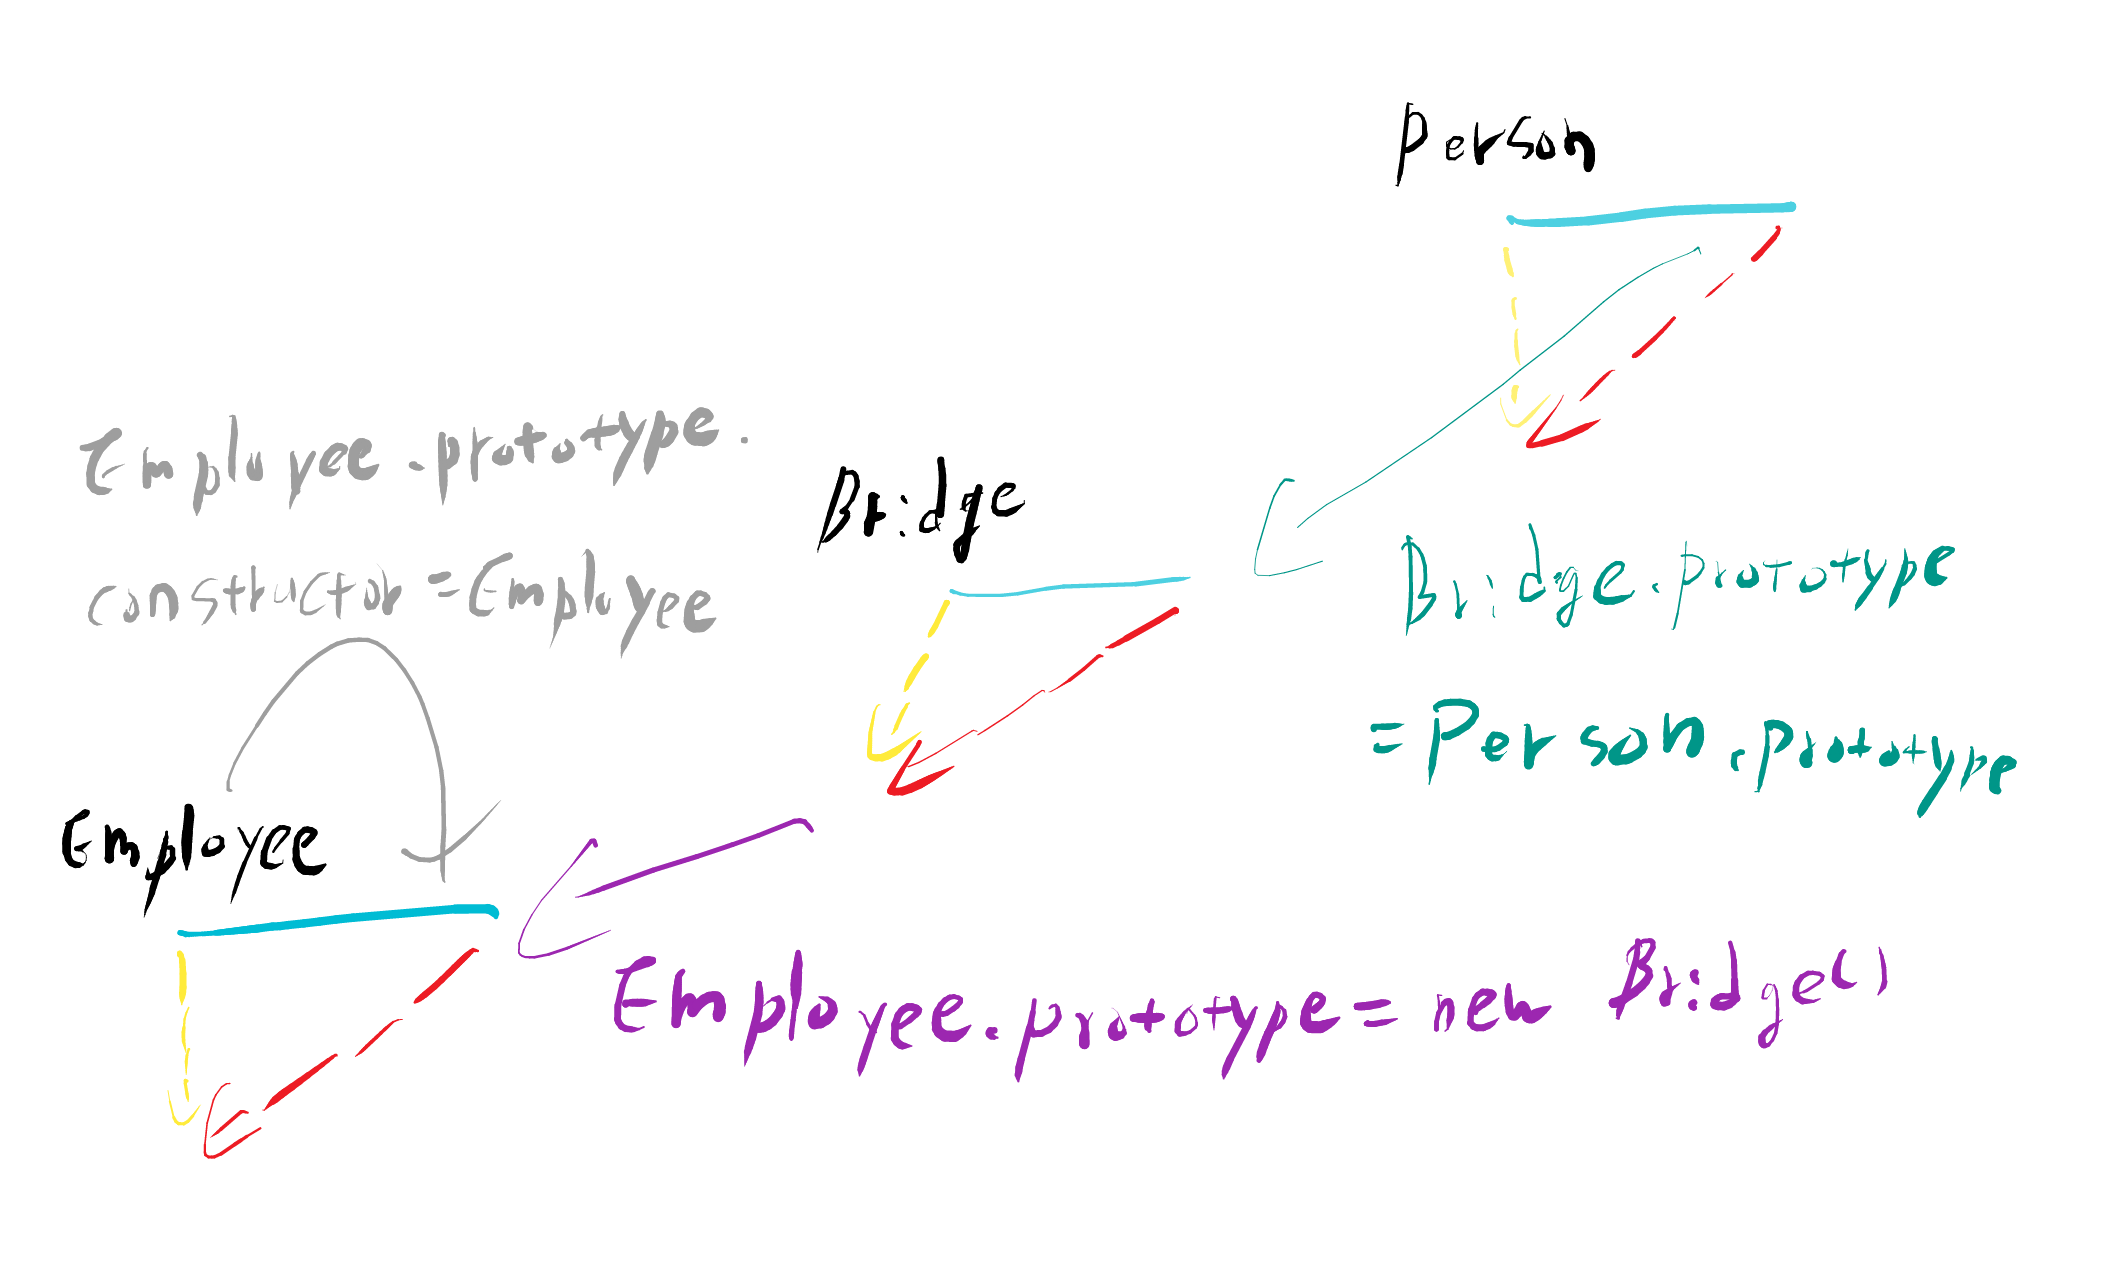 Person
Employee.prototype.
constructor=Employee
Bridge
Bridge.prototype
=Person.prototype
Employee
Employee.prototype=new Bridge()